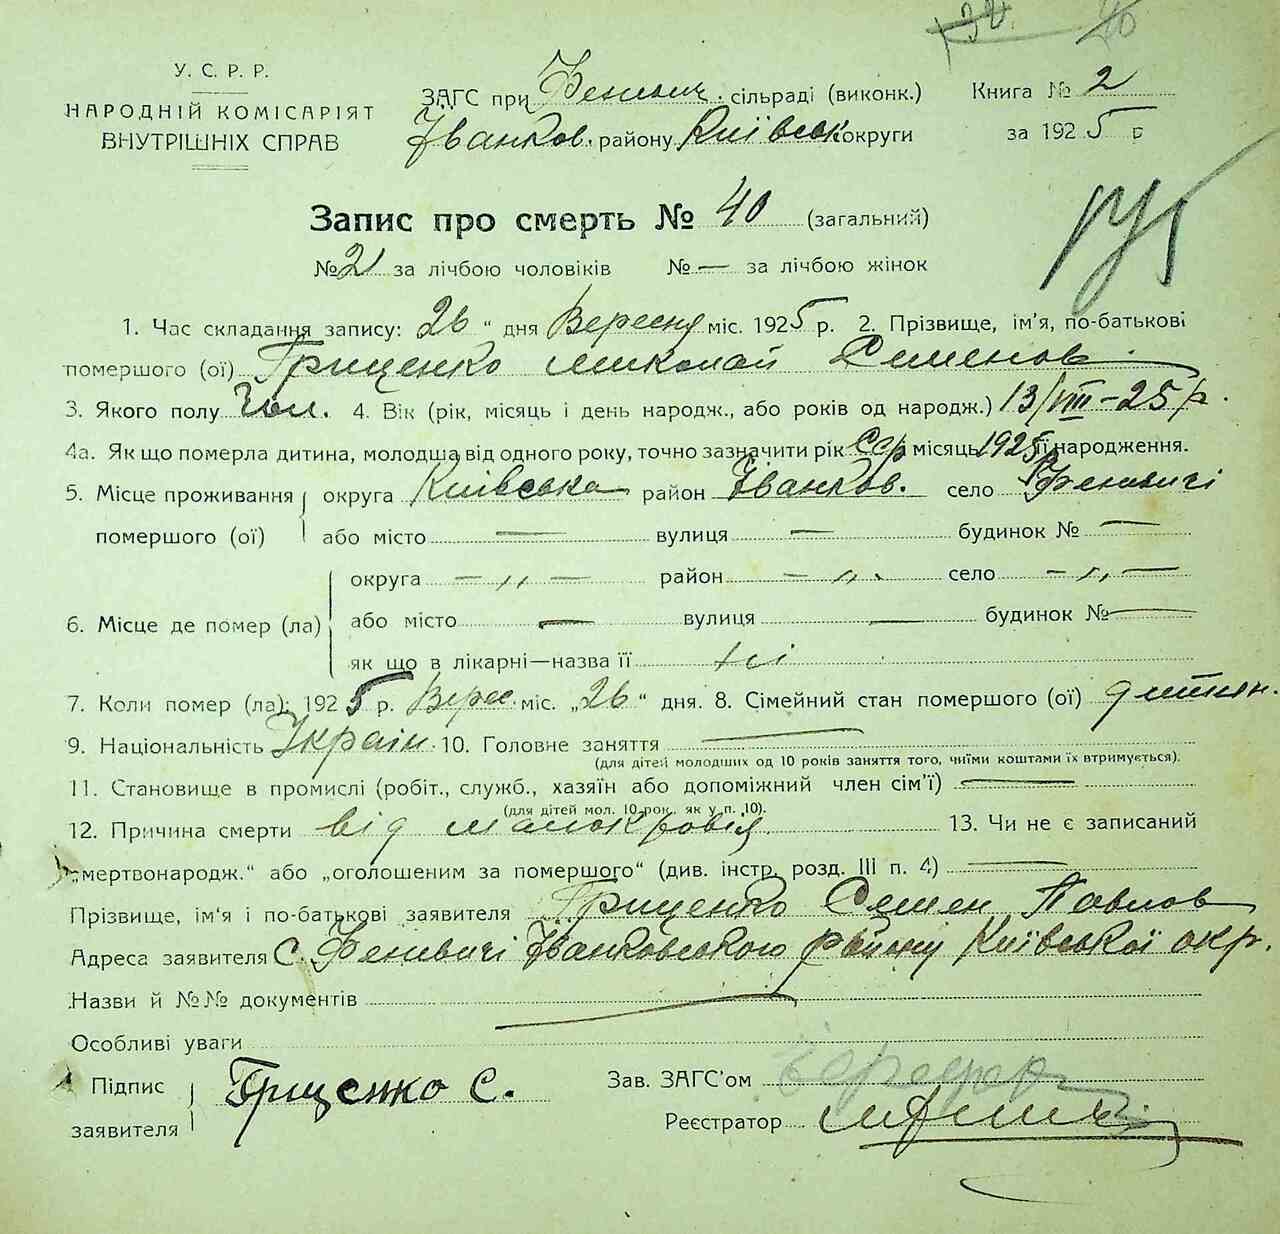 У. С. Р. Р.
НАРОДНІЙ КОМІСАРІЯТ
ВНУТРІШНІХ СПРАВ
ЗАГС при Феневич. сільраді (виконк.) Книга № 2
Іванков. району Київськ округи за 1925 р
Запис про смерть № 40 (загальний)
№ 21 за лічбою чоловіків № — за лічбою жінок
1. Час складання запису: 26 " дня Вересня міс. 1925 р. 2. Прізвище, ім'я, по-батькові
помершого (ої) Гриценко Миколай Семенов
3. Якого полу Чол. 4. Вік (рік, місяць і день народж., або років од народж.) 13/VIII-25 р.
4а. Як що померла дитина, молодша від одного року, точно зазначити рік Сер місяць 1925 її народження.
5. Місце проживання округа Київська район Іванков. село Феневичі
помершого (ої) або місто — вулиця — будинок № —
6. Місце де помер (ла) округа — „ — район — „ село — „ —
або місто — вулиця — будинок № —
як що в лікарні—назва її ні
7. Коли помер (ла): 1925 р. Верес. міс. „26" дня. 8. Сімейний стан помершого (ої) дитин.
9. Національність Україн. 10. Головне заняття —
(для дітей молодших од 10 років заняття того, чиїми коштами їх втримується).
11. Становище в промислі (робіт., служб., хазяїн або допоміжний член сім'ї) —
(для дітей мол. 10 рок. як у п. 10).
12. Причина смерти від малокровія 13. Чи не є записаний
„мертвонародж." або „оголошеним за помершого" (див. інстр. розд. III п. 4) —
Прізвище, ім'я і по-батькові заявителя Гриценко Семен Павлов
Адреса заявителя С. Феневичі Іванковського району Київської окр.
Назви й №№ документів —
Особливі уваги
Підпис заявителя Грищенко С.
Зав. ЗАГС'ом
Реєстратор